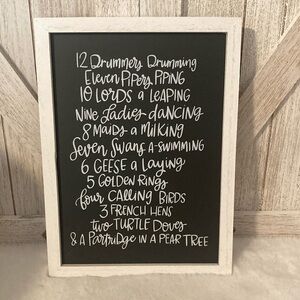 12 Drummers Drumming
Eleven PiPers PiPiNG
10 LORDS a LEAPiNG
NiNE Ladies dANCiNG
8 MAiDS a MiLKiNG
Seven Swans A-SWiMMiNG
6 GEESE a Laying
5 GOLDEN RiNgs
four CALLiNG BiRDS
3 FRENCH HENS
two TURTLE Doves
& A PartRidge iN A PEAR TREE